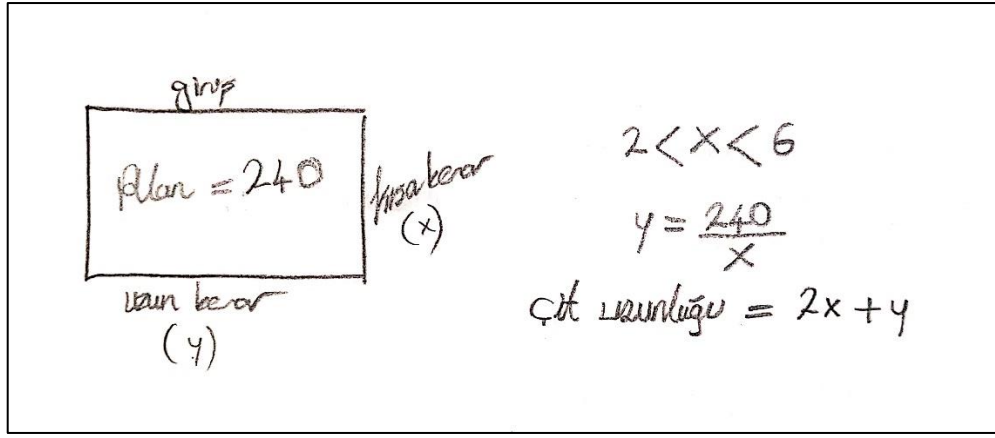 giriş
Alan = 240
kısa kenar
(x)
uzun kenar
(y)
2 < x < 6
y = 240/x
Çit uzunluğu = 2x + y